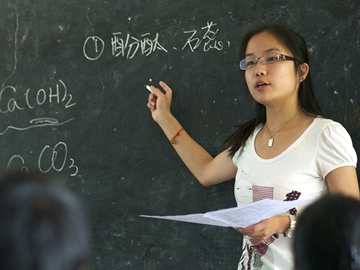 ① 酚酞、石蕊
Ca(OH)₂
CO₃